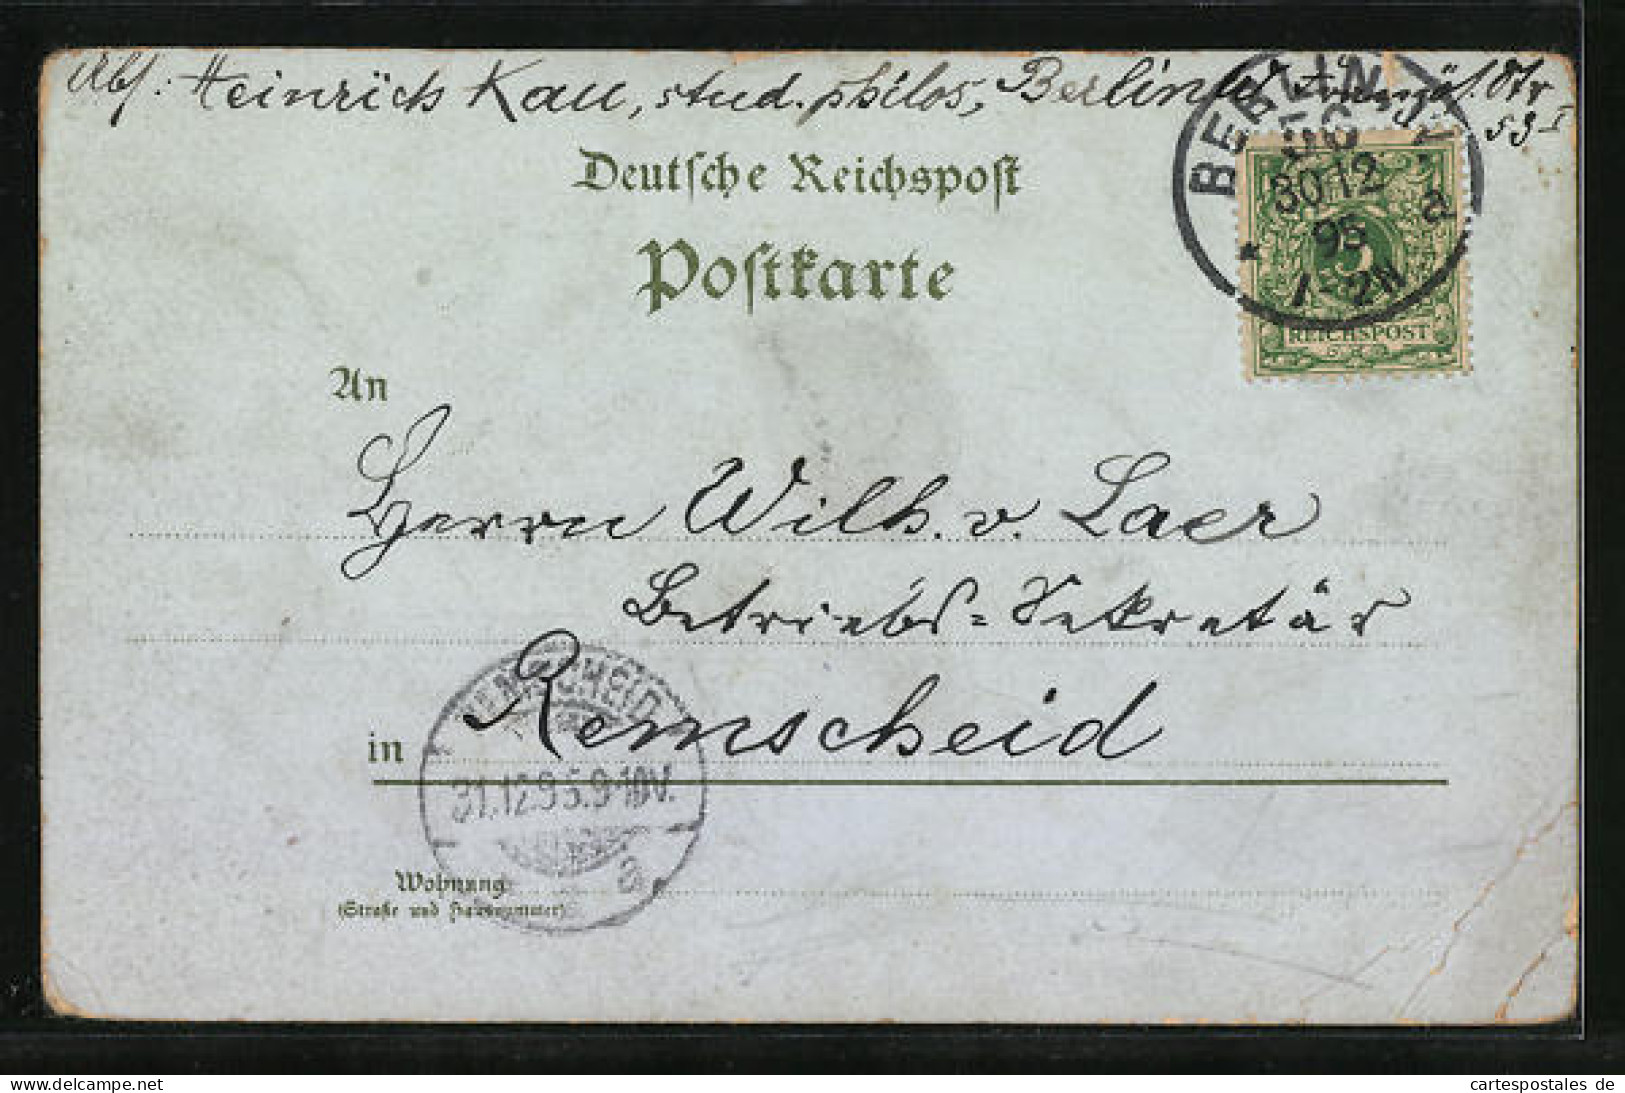 Abs: Heinrich Kau, stud. philos, Berlin
53 I
Deutsche Reichspost
Postkarte
BERLIN
30 12
95
1-2N
a
5
REICHSPOST
An
Herrn Wilh. v. Laer
Betriebs=Sekretär
in Remscheid
REMSCHEID
31.12.95.9-10V.
a
Wohnung
(Straße und Hausnummer)
www.delcampe.net
cartespostales de